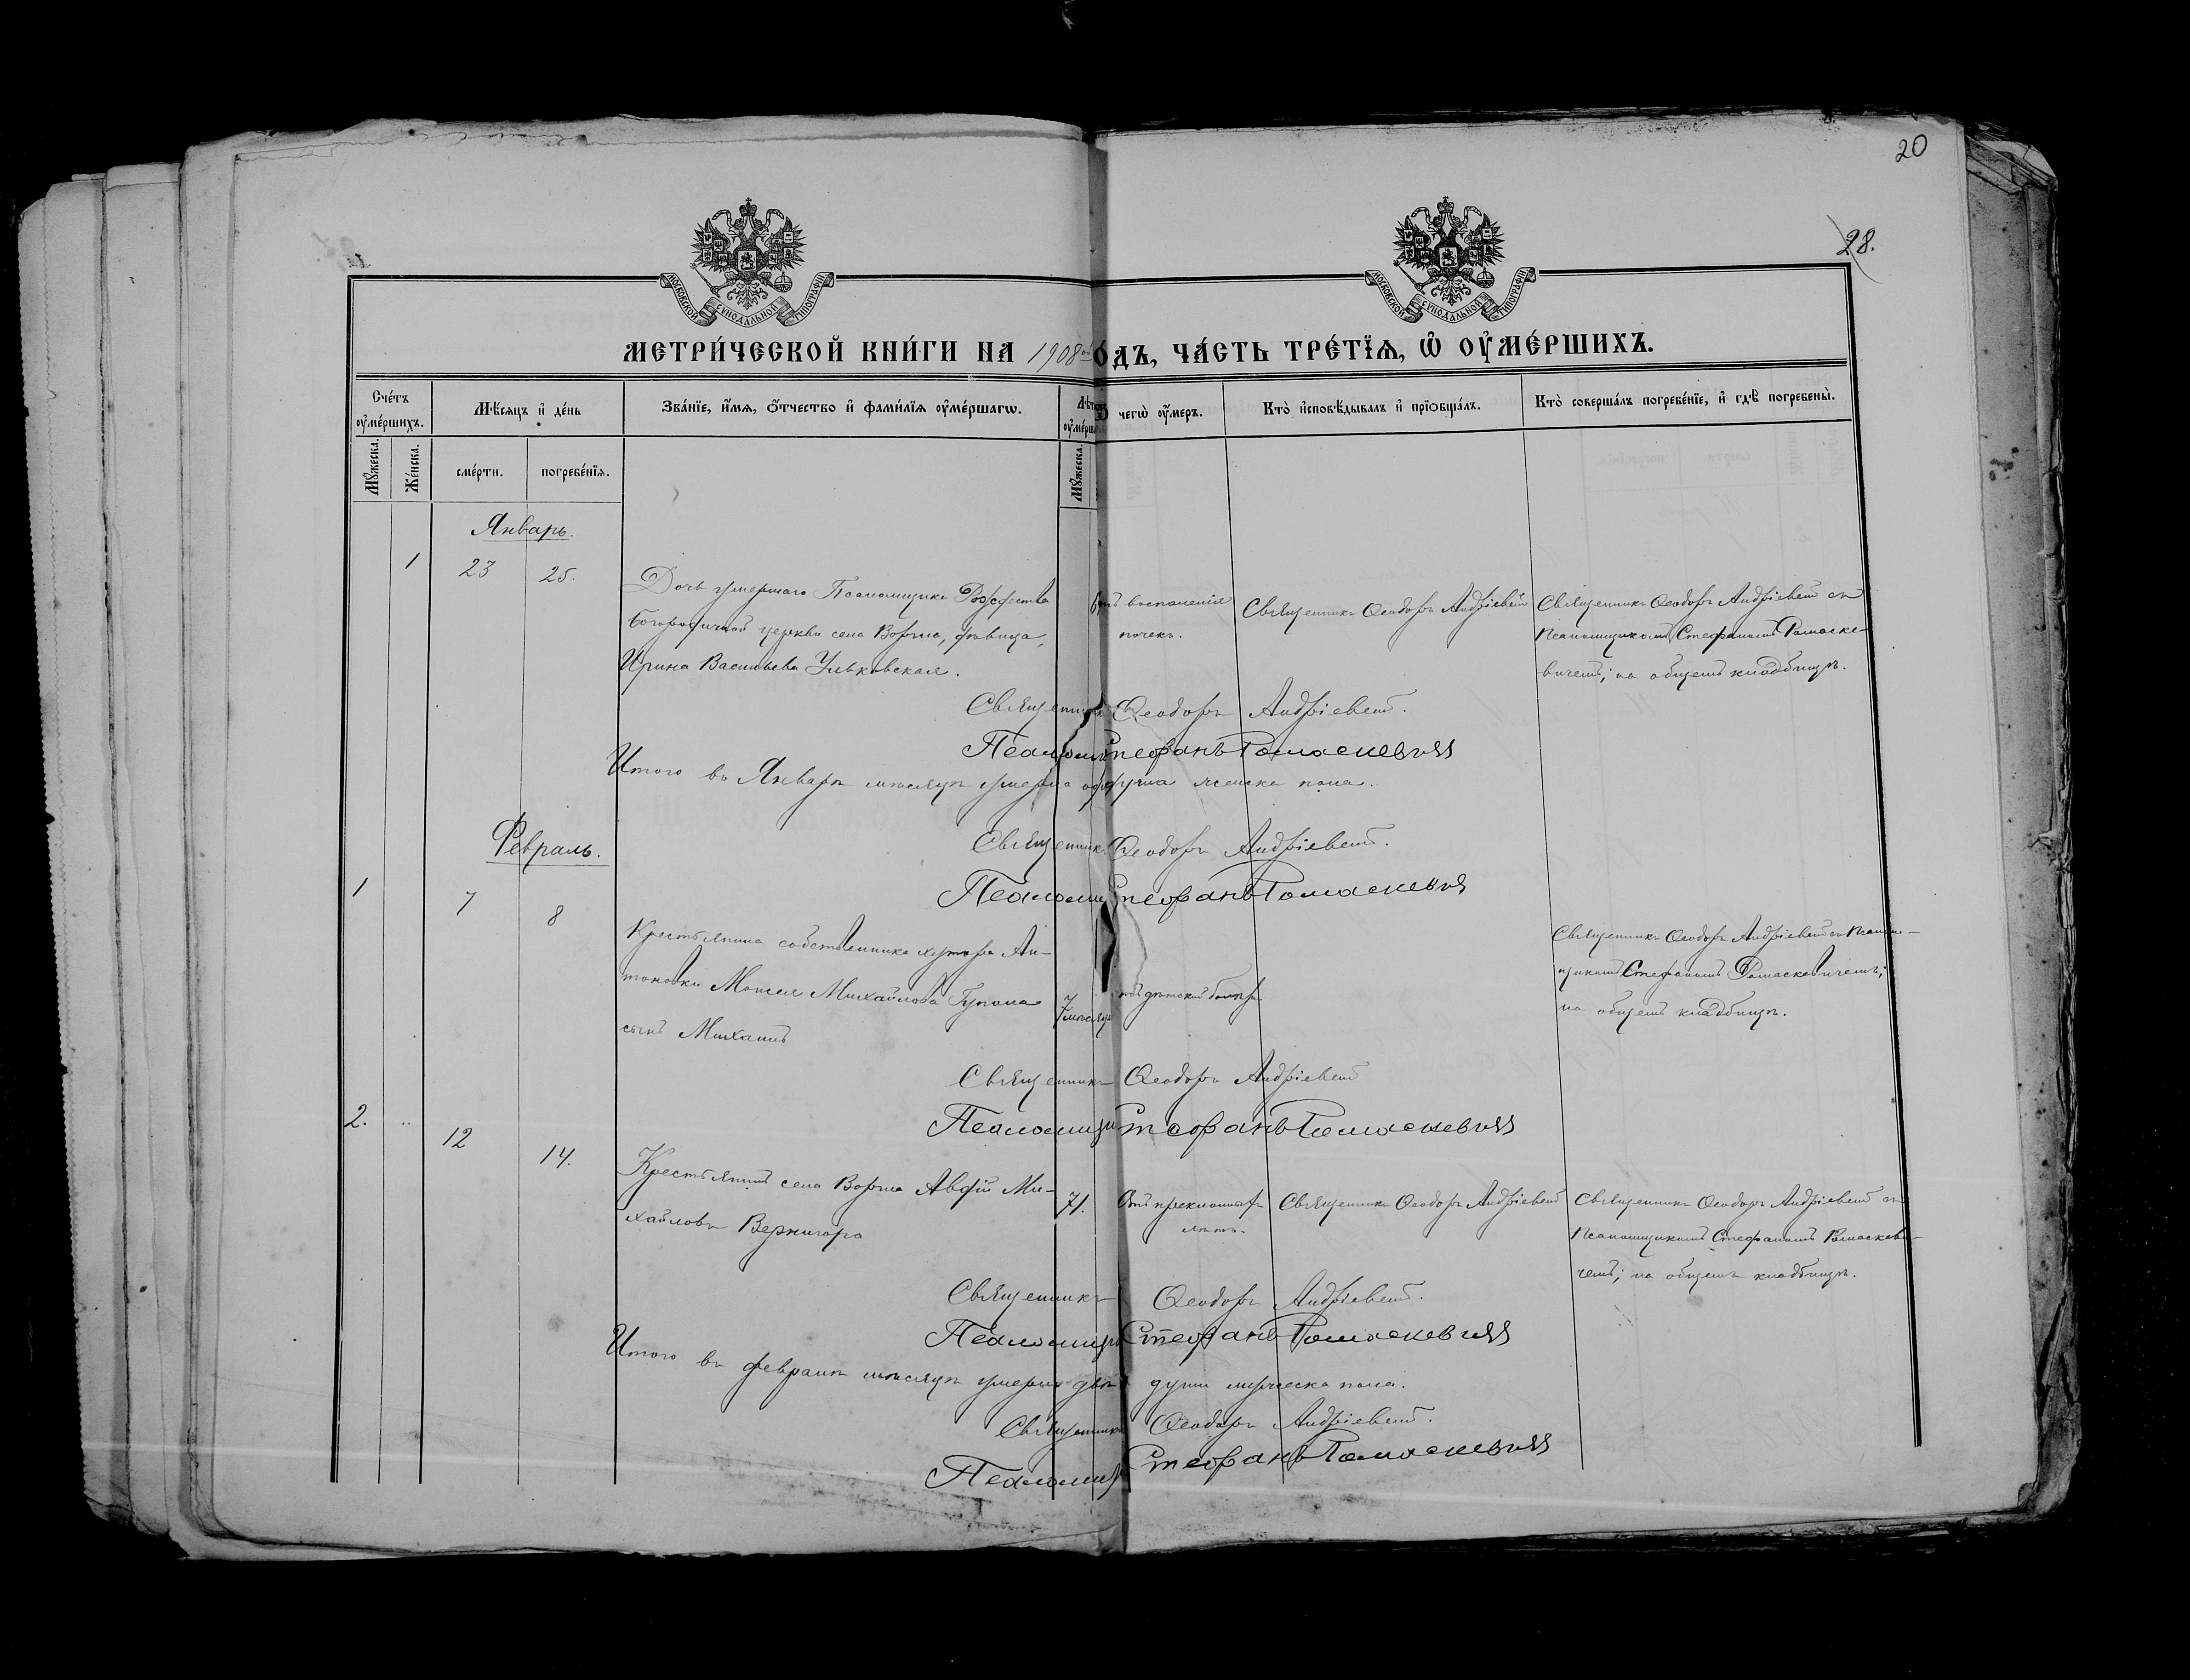 20
28.
МОСКОВСКОЙ СѴНОДАЛЬНОЙ ТИПОГРАФІИ
МОСКОВСКОЙ СѴНОДАЛЬНОЙ ТИПОГРАФІИ
МЕТРИ́ЧЕСКОЙ КНИ́ГИ НА 1908 о́дъ, ЧА́СТЬ ТРЕ́ТЇѦ, Ѡ ОУМЕ́РШИХЪ.
Сче́тъ оумершихъ.
Мѣ́сяцъ и де́нь
Зва́нїе, и́мѧ, о́тчество и фами́лїѧ оуме́ршагѡ.
чегѡ̀ оу́меръ.
Кто̀ и҆сповѣ́дывалъ и҆ прїѻбща́лъ.
Кто̀ соверша́лъ погребе́нїе, и҆ гдѣ̀ погребены̀.
Мꙋжеска.
Же́нска.
сме́рти.
погребе́нїѧ.
Мꙋжеска.
Январь.
1 23 25.
Дочь умершаго Псаломщика Рождества
Богородичной церкви села Воргла, дѣвица,
Ирина Васильева Ульковская.
Отъ воспаленія
почекъ.
Священникъ Ѳеодоръ Андріевскій
Священникъ Ѳеодоръ Андріевскій съ
Псаломщикомъ Стефаномъ Ромаске-
вичемъ; на общемъ кладбищѣ.
Священникъ Ѳеодоръ Андріевскій.
Псаломщ Стефанъ Ромаскевичъ
Итого въ Январѣ мѣсяцѣ умерла одна душа женска пола.
Священникъ Ѳеодоръ Андріевскій.
Псаломщ Стефанъ Ромаскевичъ
Февраль.
1 7 8
Крестьянина собственника хутора Ан-
тоновки Моисея Михайлова
сынъ Михаилъ
7 мѣсяц
Священникъ Ѳеодоръ Андріевскій съ Псалом-
щикомъ Стефаномъ Ромаскевичемъ;
на общемъ кладбищѣ.
Священникъ Ѳеодоръ Андріевскій
Псаломщи Стефанъ Ромаскевичъ
2. 12 14.
Крестьянинъ села Воргла Авдій Ми-
хайловъ Вернигора
71.
Отъ преклонныхъ
лѣтъ.
Священникъ Ѳеодоръ Андріевскій
Священникъ Ѳеодоръ Андріевскій съ
Псаломщикомъ Стефаномъ Ромаскеви-
чемъ; на общемъ кладбищѣ.
Священникъ Ѳеодоръ Андріевскій.
Псаломщи Стефанъ Ромаскевичъ
Итого въ февралѣ мѣсяцѣ умерло двѣ души мужеска пола.
Священникъ Ѳеодоръ Андріевскій.
Псаломщ Стефанъ Ромаскевичъ